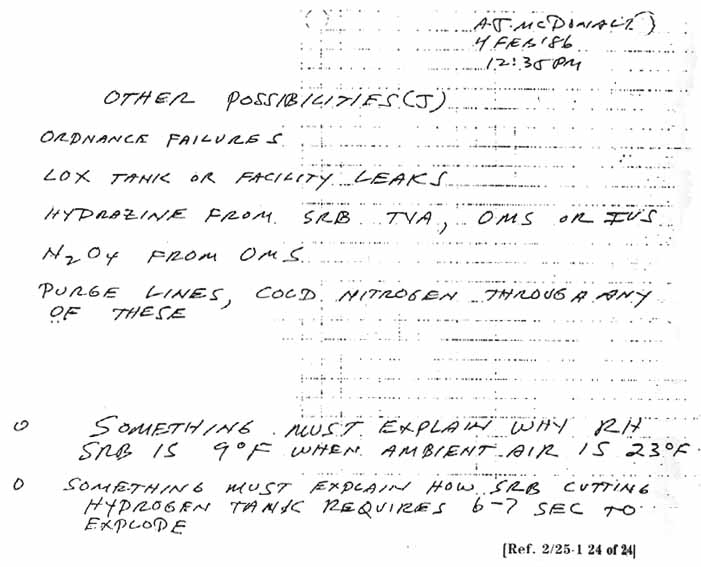 A.J. McDONALD
4 FEB '86
12:35 PM
OTHER POSSIBILITIES (J)
ORDNANCE FAILURES
LOX TANK OR FACILITY LEAKS
HYDRAZINE FROM SRB TVA, OMS OR IUS
N2O4 FROM OMS
PURGE LINES, COLD NITROGEN THROUGH ANY
OF THESE
o SOMETHING MUST EXPLAIN WHY RH
SRB IS 9°F WHEN AMBIENT AIR IS 23°F
o SOMETHING MUST EXPLAIN HOW SRB CUTTING
HYDROGEN TANK REQUIRES 6-7 SEC TO
EXPLODE
[Ref. 2/25-1 24 of 24]